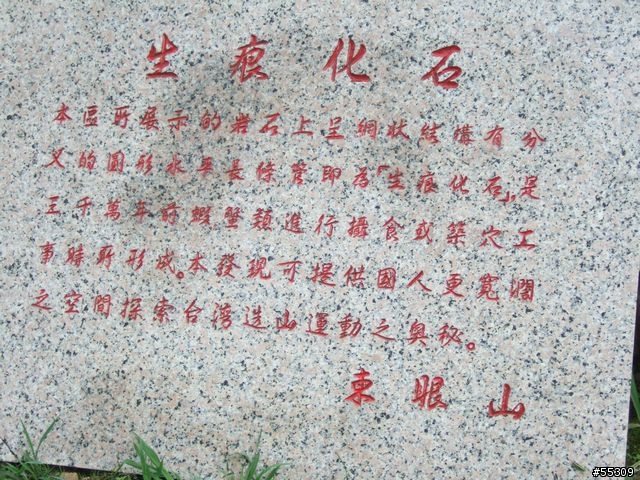 生痕化石
本區所展示的岩石上呈網狀結構有分
叉的圓形水平長條管即為「生痕化石」,是
三千萬年前蝦蟹類進行攝食或築穴工
事時所形成。本發現可提供國人更寬濶
之空間探索台灣造山運動之奧秘。
東眼山
#55309